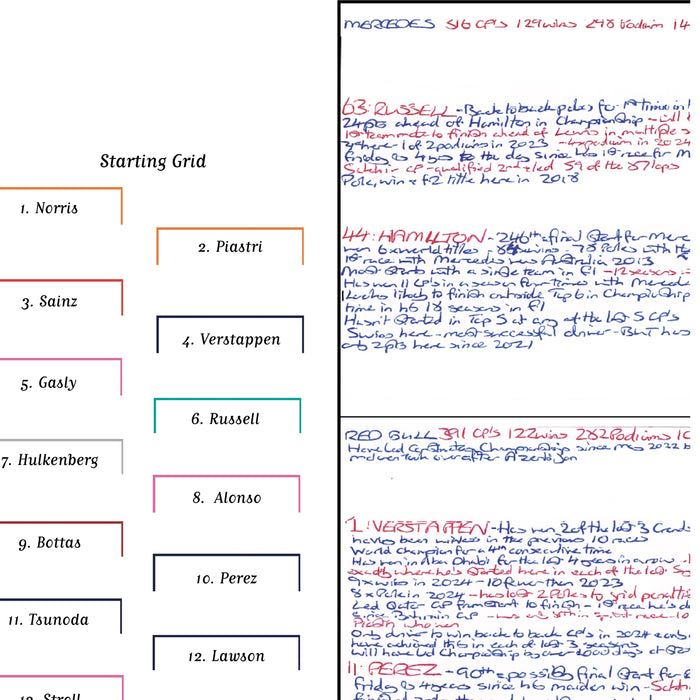 Starting Grid
1. Norris
2. Piastri
3. Sainz
4. Verstappen
5. Gasly
6. Russell
7. Hulkenberg
8. Alonso
9. Bottas
10. Perez
11. Tsunoda
12. Lawson
13. Stroll
MERCEDES 516 CP's 129 wins 298 Podiums 14
63: RUSSELL - Back to back poles for 1st time in
24pts ahead of Hamilton in Championship - will
1st teammate to finish ahead of Lewis in multiple s
where 1 of 2 podiums in 2023 - 4x podium in 2024
Friday is 4 years to the day since his 1st race for M
Sakhir GP - qualified 2nd + led 59 of the 87 laps
Pole, win + F2 title here in 2018
44: HAMILTON - 246th + final Start for Merc
won 6 world titles - 84 wins - 78 Poles with
1st race with Mercedes was Australia 2013
Most Starts with a single team in F1 - 12 seasons
Has won 11 GP's in a season four times with Mercede
Lewis likely to finish outside Top 6 in Championship
time in his 18 seasons in F1
Hasn't Started in Top 5 at any of the last 5 GP's
5 wins here - most successful driver - BUT has
only 2pts here since 2021
RED BULL 391 GP's 122 wins 282 Podiums 10
Have led Constructors Championship since 2022
McLaren took over after Azerbaijan
1: VERSTAPPEN - Has won 2 of the last 3 Grands
having been winless in the previous 10 races
World Champion for a 4th consecutive time
Has won in Abu Dhabi for the last 4 years in a row
exactly where he's Started here in each of the last
9 x wins in 2024 - 10 fewer than 2023
8 x Pole in 2024 - has lost 2 Poles to grid penalties
Led Qatar GP from Start to finish - 1st race he's
since Bahrain GP
Only driver to win back to back GP's in 2024
have achieved this in each of last 3 seasons
will have led Championship by over 1000 days
11: PEREZ - 90th + possibly final Start for
Friday is 4 years since his maiden win - Sakhir